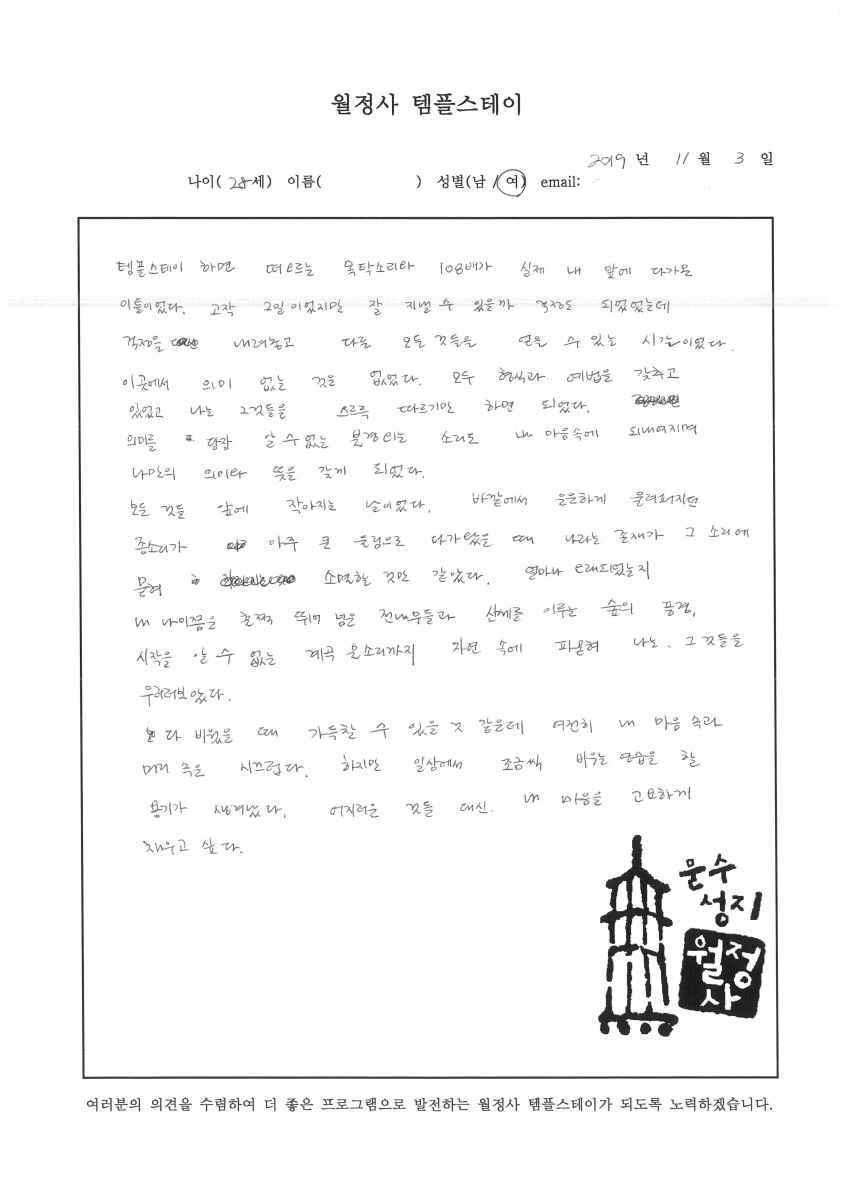 월정사 템플스테이
2019 년 11 월 3 일
나이( 28세) 이름( ) 성별(남 / 여) email:
템플스테이 하면 떠오르는 목탁소리와 108배가 실제 내 앞에 다가온
이틀이었다. 고작 2일이었지만 잘 지낼 수 있을까 걱정도 되었었는데
걱정을 내려놓고 다른 모든 것들을 얻을 수 있는 시간이었다.
이곳에서 의미 없는 것은 없었다. 모두 형식과 예법을 갖추고
있었고 나는 그것들을 스르륵 따르기만 하면 되었다.
의미를 당장 알 수 없는 불경 외는 소리도 내 마음속에 되내여지며
나만의 의미와 뜻을 갖게 되었다.
모든 것들 앞에 작아지는 날이었다. 바깥에서 은은하게 울려퍼지던
종소리가 아주 큰 울림으로 다가왔을 때 나라는 존재가 그 소리에
묻혀 소멸할 것만 같았다. 얼마나 오래되었는지
내 나이쯤은 훌쩍 뛰어 넘은 전나무들과 산세를 이루는 숲의 풍경,
시작을 알 수 없는 계곡 물소리까지 자연 속에 파묻혀 나는. 그것들을
우러러보았다.
다 비웠을 때 가득찰 수 있을 것 같은데 여전히 내 마음 속과
머리 속은 시끄럽다. 하지만 일상에서 조금씩 비우는 연습을 할
용기가 생겨났다. 어지러운 것들 대신. 내 마음을 고요하게
채우고 싶다.
문수
성지
월정
사
여러분의 의견을 수렴하여 더 좋은 프로그램으로 발전하는 월정사 템플스테이가 되도록 노력하겠습니다.